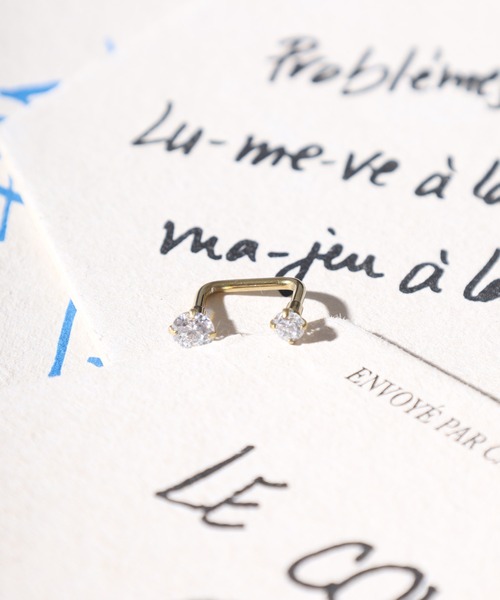 Problèmes
Lu-me-ve à la
ma-jeu à la
ENVOYÉ PAR
LE